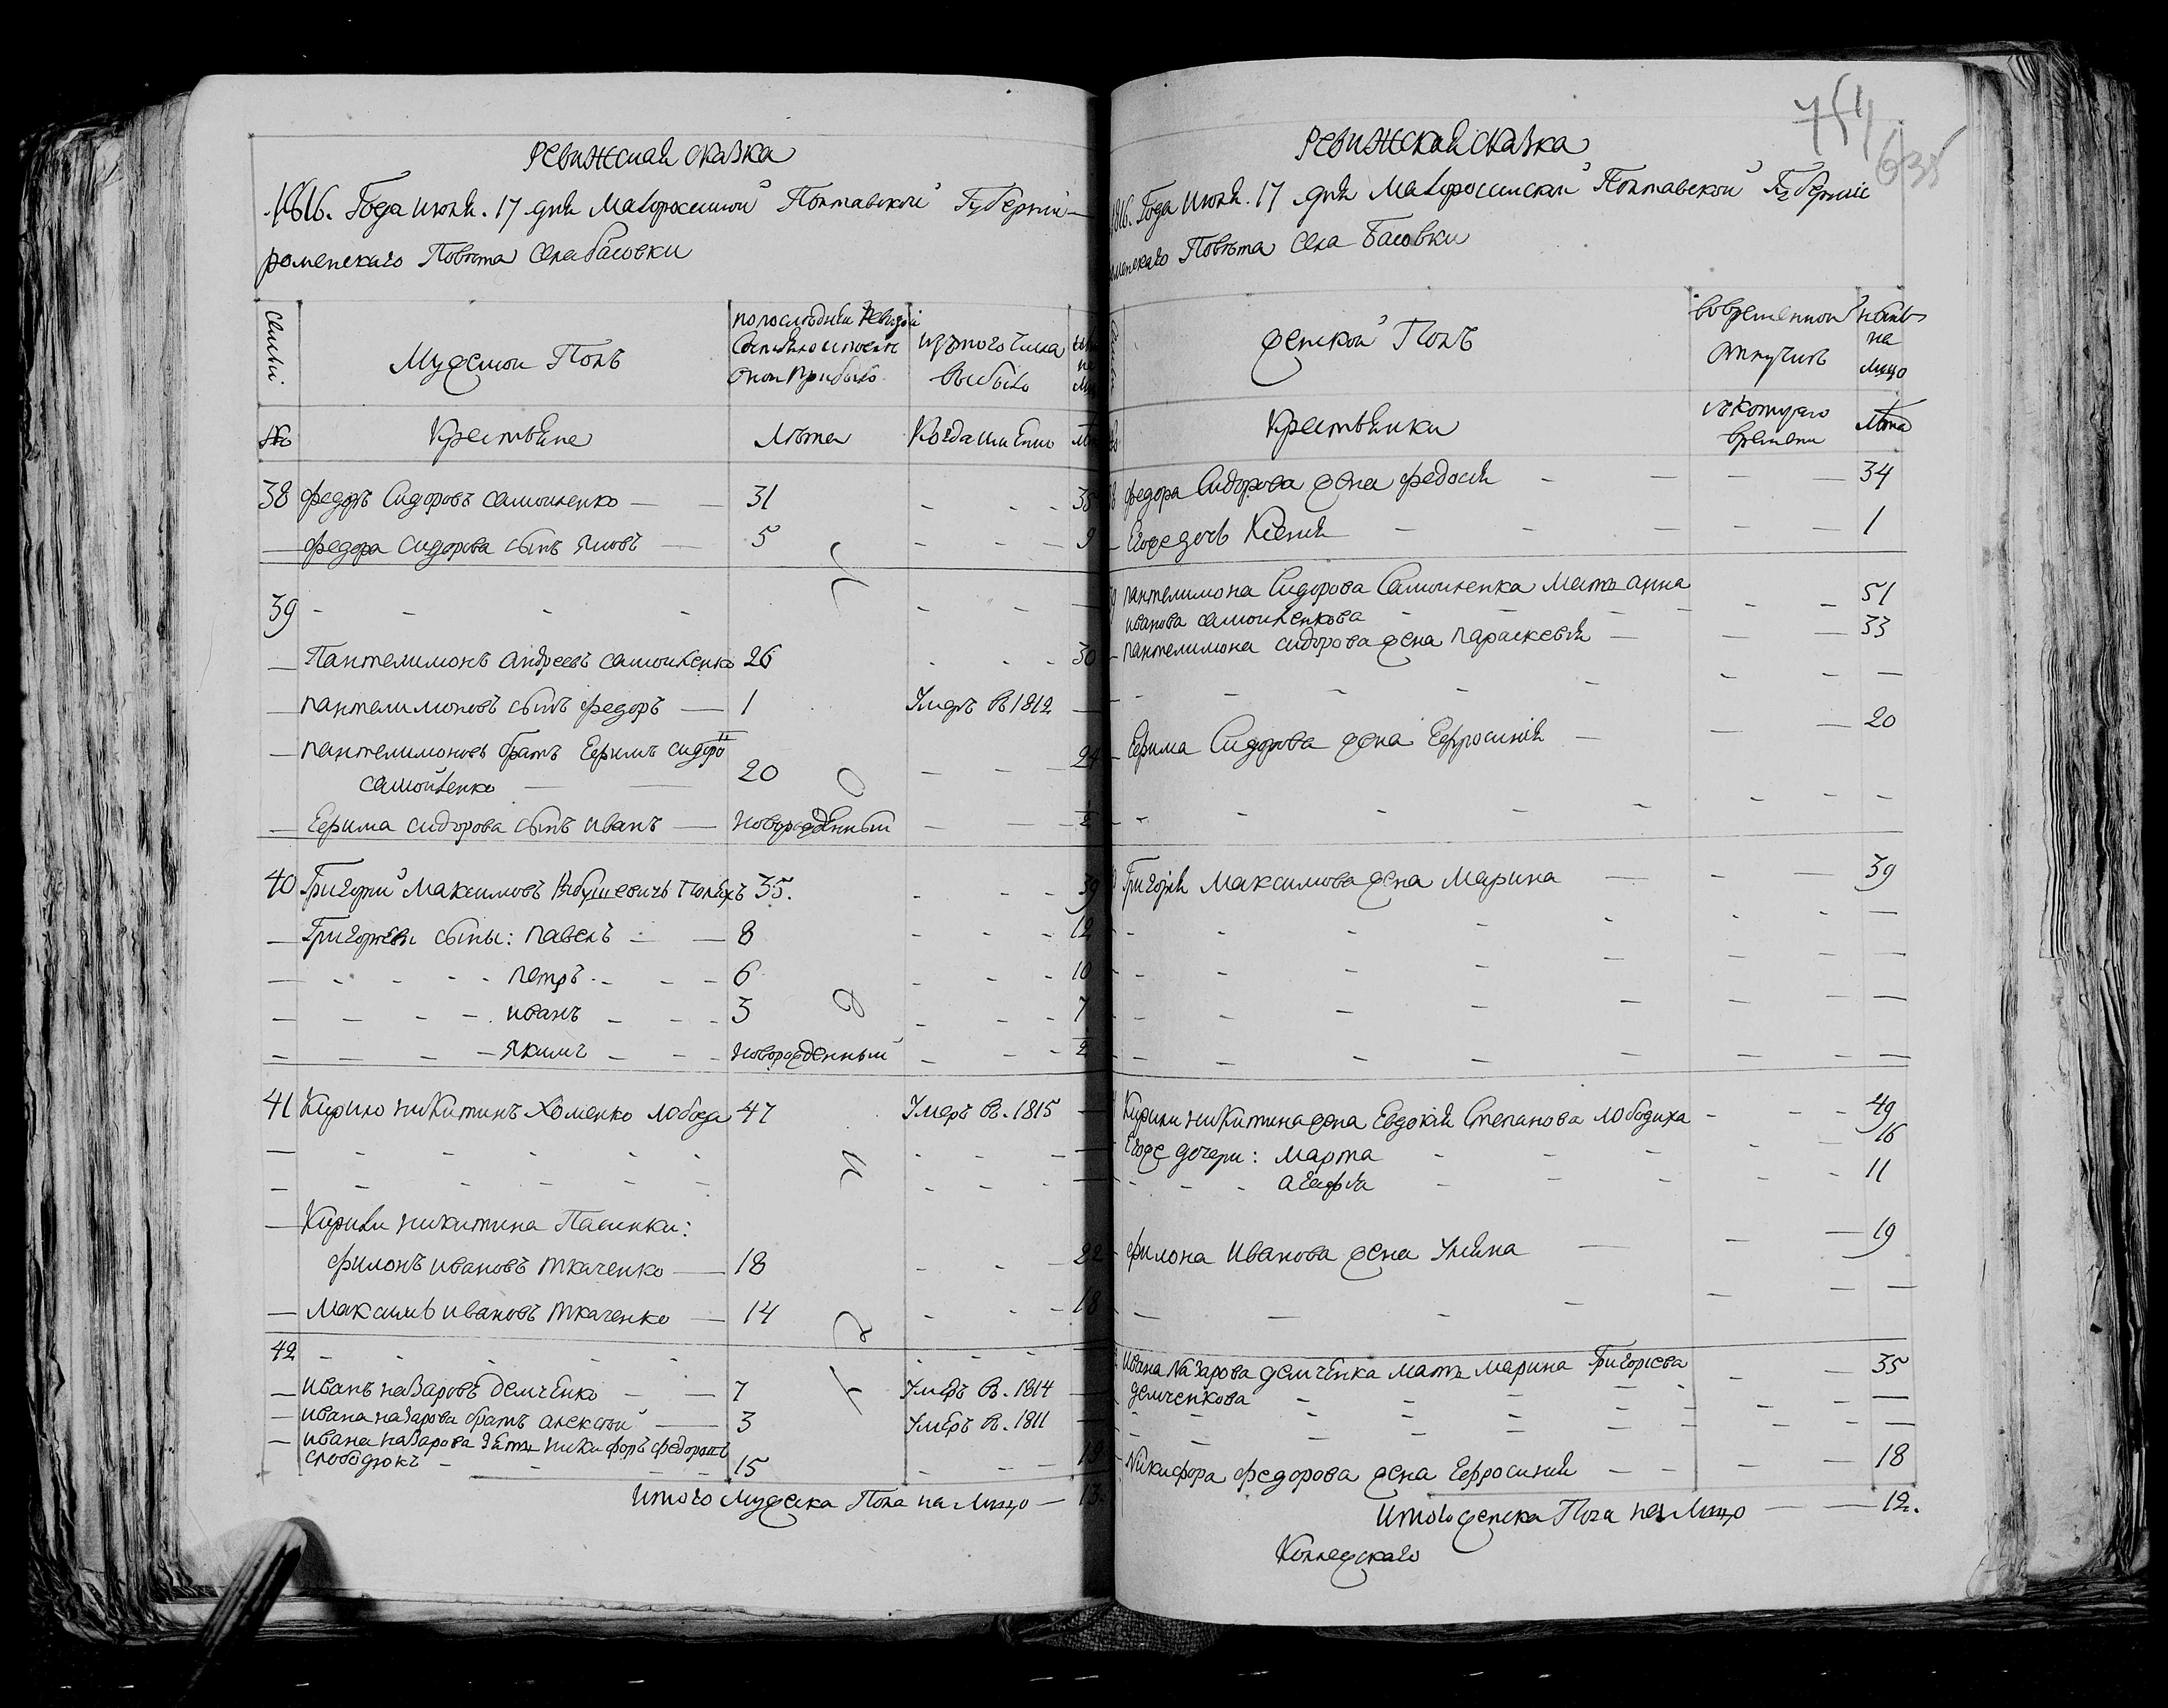 Ревижская сказка
1816. Года июля. 17 дня Малороссийской Полтавской Губернии
роменскаго Повѣта села басовки
Семьи
Мужеской Полъ
по последней Ревизіи состояло и после оной прибыло
изъ того числа выбыло
№
Крестьяне
Лѣта
Когда имѣнно
38 федоръ Сидоровъ самойленко 31 35
федора сидорова сынъ яковъ 5 9
39
Пантелимонъ андреевъ самойленко 26 30
пантелимоновъ сынъ федоръ 1 Умеръ в 1812
пантелимоновъ братъ Ефимъ сидоро
самойленко 20 24
Ефима сидорова сынъ иванъ новорожденный
40 Григорий Максимовъ 35. 39
Григориевы сыны: павелъ 8 12
петръ 6 10
иванъ 3 7
якимъ новорожденный
41 Кирило никитинъ Хоменко лобода 47 Умеръ в. 1815
Кирили никитина Пасинки:
филонъ ивановъ ткаченко 18 22
максимъ ивановъ ткаченко 14 18
42
иванъ назаровъ демченко 7 Умеръ в. 1814
ивана назарова братъ алексѣй 3 Умеръ в. 1811
ивана назарова зять никифоръ федоровъ
слободюкъ 15 19
Итого мужеска Пола на лицо 13
751
635
Ревижская сказка
1816. Года июля. 17 дня Малоросийской Полтавской Губерніи
оменскаго Повѣта села Басовки
женской Полъ
во временной отлучкѣ
на лицо
Крестьянки
съ котораго времени
Лѣта
федора Сидорова жена федосия 34
Егоже дочь Ксения 1
пантелимона Сидорова Самойленка мать анна 51
иванова самойленкова
пантелимона сидорова жена параскевия 33
Ефима Сидорова жена Ефросиния 20
Григория Максимова жена Марина 39
Кирили никитина жена Евдокия Степанова лободиха 49
Егоже дочери: марта 16
агафия 11
филона Иванова жена Ульяна 19
Ивана Назарова демченка мать марина Григориева 35
демченкова
Никифора федорова жена Ефросиния 18
Итого женска Пола на лицо 12.
Коллежскаго